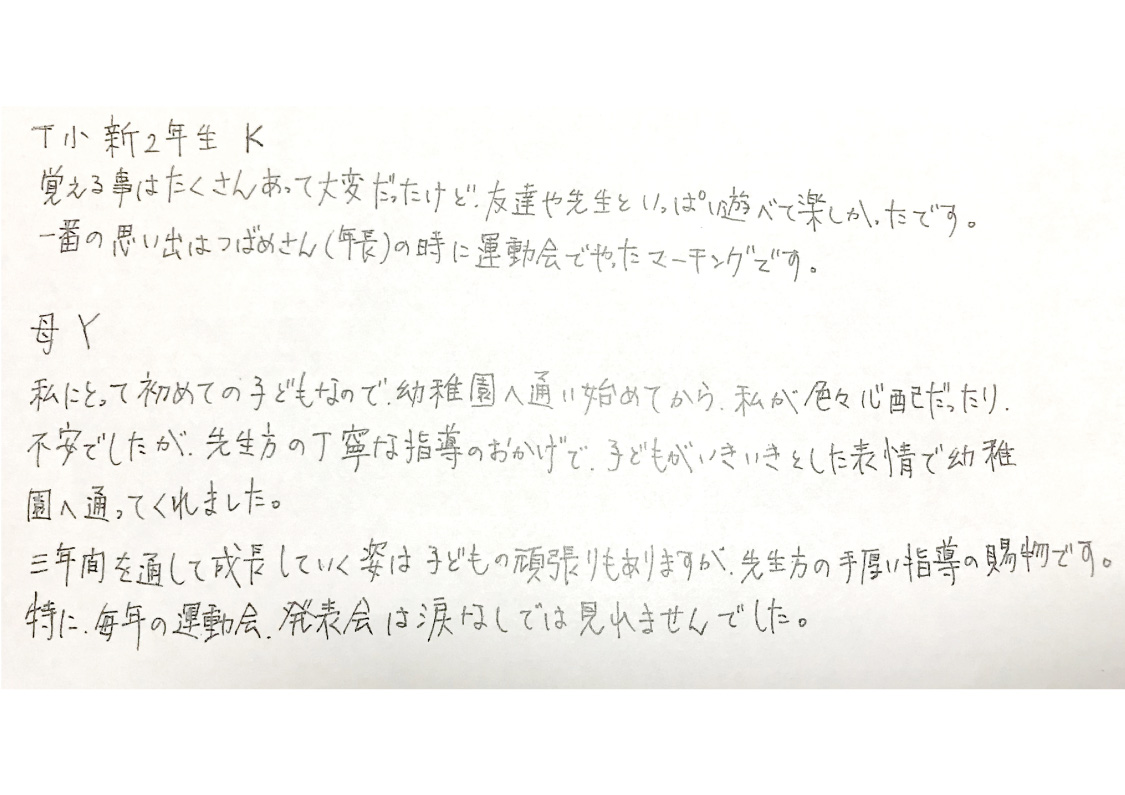 T小 新2年生 K
覚える事はたくさんあって大変だったけど、友達や先生といっぱい遊べて楽しかったです。
一番の思い出はつばめさん(年長)の時に運動会でやったマーチングです。
母 Y
私にとって初めての子どもなので、幼稚園へ通い始めてから、私が色々心配だったり、
不安でしたが、先生方の丁寧な指導のおかげで、子どもがいきいきとした表情で幼稚
園へ通ってくれました。
三年間を通して成長していく姿は子どもの頑張りもありますが、先生方の手厚い指導の賜物です。
特に、毎年の運動会、発表会は涙なしでは見れませんでした。